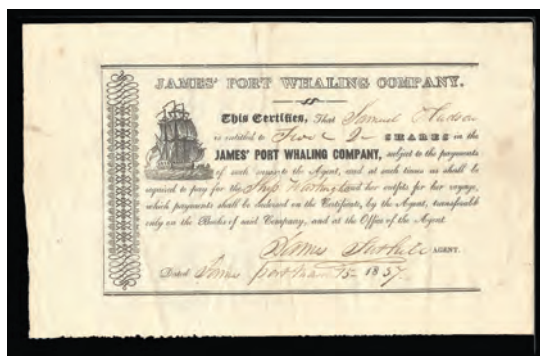 JAMES' PORT WHALING COMPANY.
This Certifies, That Samuel Hudson
is entitled to Two 2 SHARES in the
JAMES' PORT WHALING COMPANY, subject to the payments
of such sums to the Agent, and at such times as shall be
required to pay for the Ship Washington her outfits for her voyage,
which payments shall be endorsed on the Certificate, by the Agent, transferable
only on the Books of said Company, and at the Office of the Agent.
James Tuthill AGENT.
Dated James port 15 1837